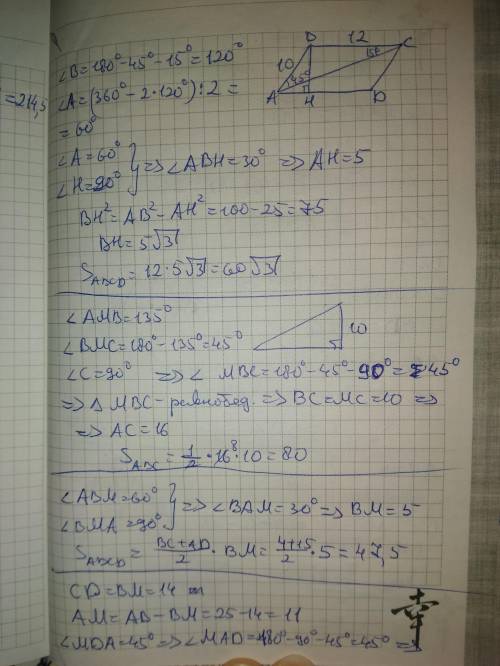 =214,5
∠B=180°-45°-15°=120°
∠A=(360°-2·120°):2=
=60°
∠A=60°
∠H=90° } => ∠ABH=30° => AH=5
BH²=AB²-AH²=100-25=75
BH=5√3
S_ABCD=12·5√3=60√3
B 12 C
10 45° 15°
A H D
∠AMB=135°
∠BMC=180°-135°=45°
10
∠C=90° => ∠ MBC=180°-45°-90°=45°
=> △ MBC-равнобед. => BC=MC=10 =>
=> AC=16
S_ABC=1/2·16⁸·10=80
∠ABM=60°
∠BMA=90° } => ∠BAM=30° => BM=5
S_ABCD=(BC+AD)/2·BM=(4+15)/2·5=47,5
CD=BM=14
AM=AB-BM=25-14=11
∠MDA=45° => ∠MAD=180°-90°-45°=45° =>